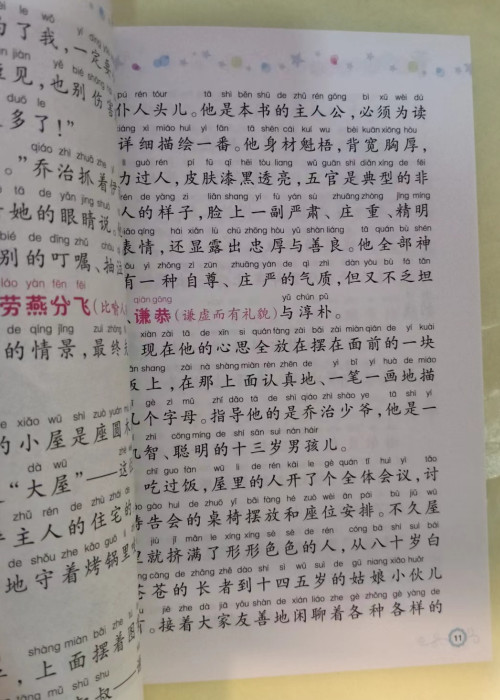 为了我,一定要
见,也别伤害
多了!”
qiáo zhì zhuā zhe
。”乔治抓着
tā de yǎn jing shuō
她的眼睛说
bié de dīng zhǔ
别的叮嘱、抽泣
láo yàn fēn fēi
劳燕分飞(比喻人
de qíng jǐng zuì zhōng
的情景,最终
xiǎo wū shì zuò yuán
的小屋是座圆木
dà wū
“大屋”——这
zhǔ rén de zhù zhái
主人的住宅的
de shǒu zhe kǎo guō lǐ
地守着烤锅里
shàng miàn bǎi zhe
,上面摆着
pú rén tóur tā shì běn shū de zhǔ rén gōng bì xū wèi dú
仆人头儿。他是本书的主人公,必须为读
xiáng xì miáo huì yì fān tā shēn cái kuí wu bèi kuān xiōng hòu
详细描绘一番。他身材魁梧,背宽胸厚,
lì guò rén pí fū qī hēi tòu liàng wǔ guān shì diǎn xíng de fēi
力过人,皮肤漆黑透亮,五官是典型的非
rén de yàng zi liǎn shang yí fù yán sù zhuāng zhòng jīng míng
人的样子,脸上一副严肃、庄重、精明
biǎo qíng hái xiǎn lù chū zhōng hòu yǔ shàn liáng tā quán bù shén
表情,还显露出忠厚与善良。他全部神
yǒu yì zhǒng zì zūn zhuāng yán de qì zhì dàn yòu bù fá tǎn
有一种自尊、庄严的气质,但又不乏坦
qiān gōng yǔ chún pǔ
、谦恭(谦虚而有礼貌)与淳朴。
xiàn zài tā de xīn si quán fàng zài bǎi zài miàn qián de yí kuài
现在他的心思全放在摆在面前的一块
bǎn shang zài nà shàng miàn rèn zhēn de yì bǐ yí huà de miáo
板上,在那上面认真地、一笔一画地描
jǐ gè zì mǔ zhǐ dǎo tā de shì qiáo zhì shào ye tā shì yí
几个字母。指导他的是乔治少爷,他是一
jī zhì cōng míng de shí sān suì nán háir
机智、聪明的十三岁男孩儿。
chī guo fàn wū li de rén kāi le gè quán tǐ huì yì tǎo
吃过饭,屋里的人开了个全体会议,讨
dǎo gào huì de zhuō yǐ bǎi fàng hé zuò wèi ān pái bù jiǔ wū
祷告会的桌椅摆放和座位安排。不久屋
jiù jǐ mǎn le xíng xíng sè sè de rén cóng bā shí suì bái
就挤满了形形色色的人,从八十岁白
cāng cāng de zhǎng zhě dào shí sì wǔ suì de gū niang xiǎo huǒr
苍苍的长者到十四五岁的姑娘小伙儿
jiē zhe dà jiā yǒu shàn de xián liáo zhe gè zhǒng gè yàng de
。接着大家友善地闲聊着各种各样的
11